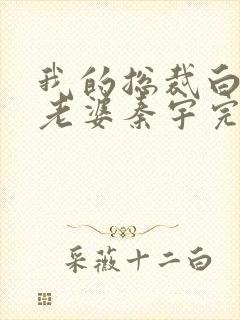 我的总裁白
老婆秦宇完
采薇十二白